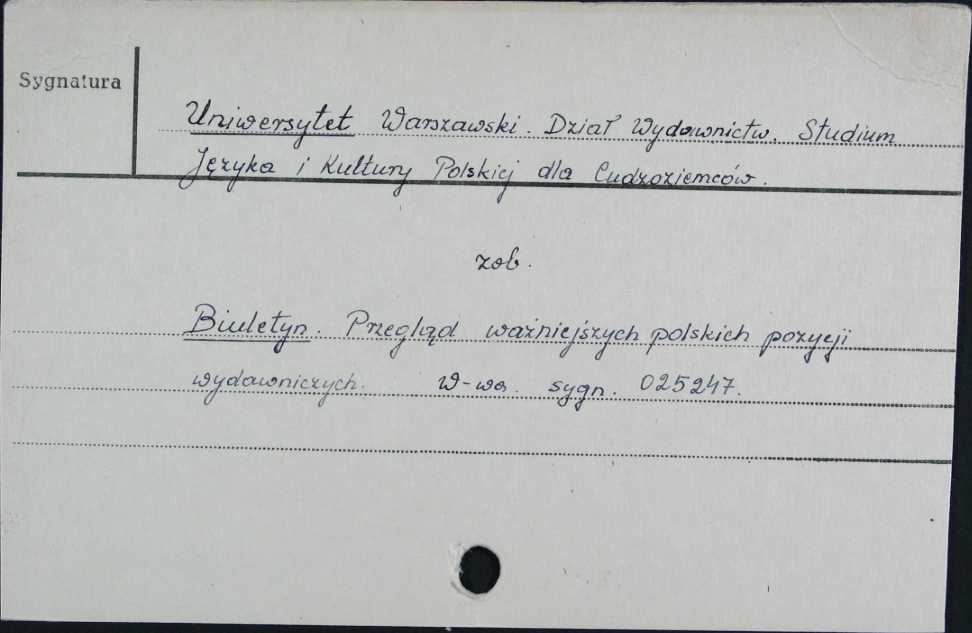 Sygnatura
Uniwersytet Warszawski. Dział Wydawnictw. Studium
Języka i Kultury Polskiej dla Cudzoziemców.
zob.
Biuletyn. Przegląd ważniejszych polskich pozycji
wydawniczych. W-wa. sygn. 025247.